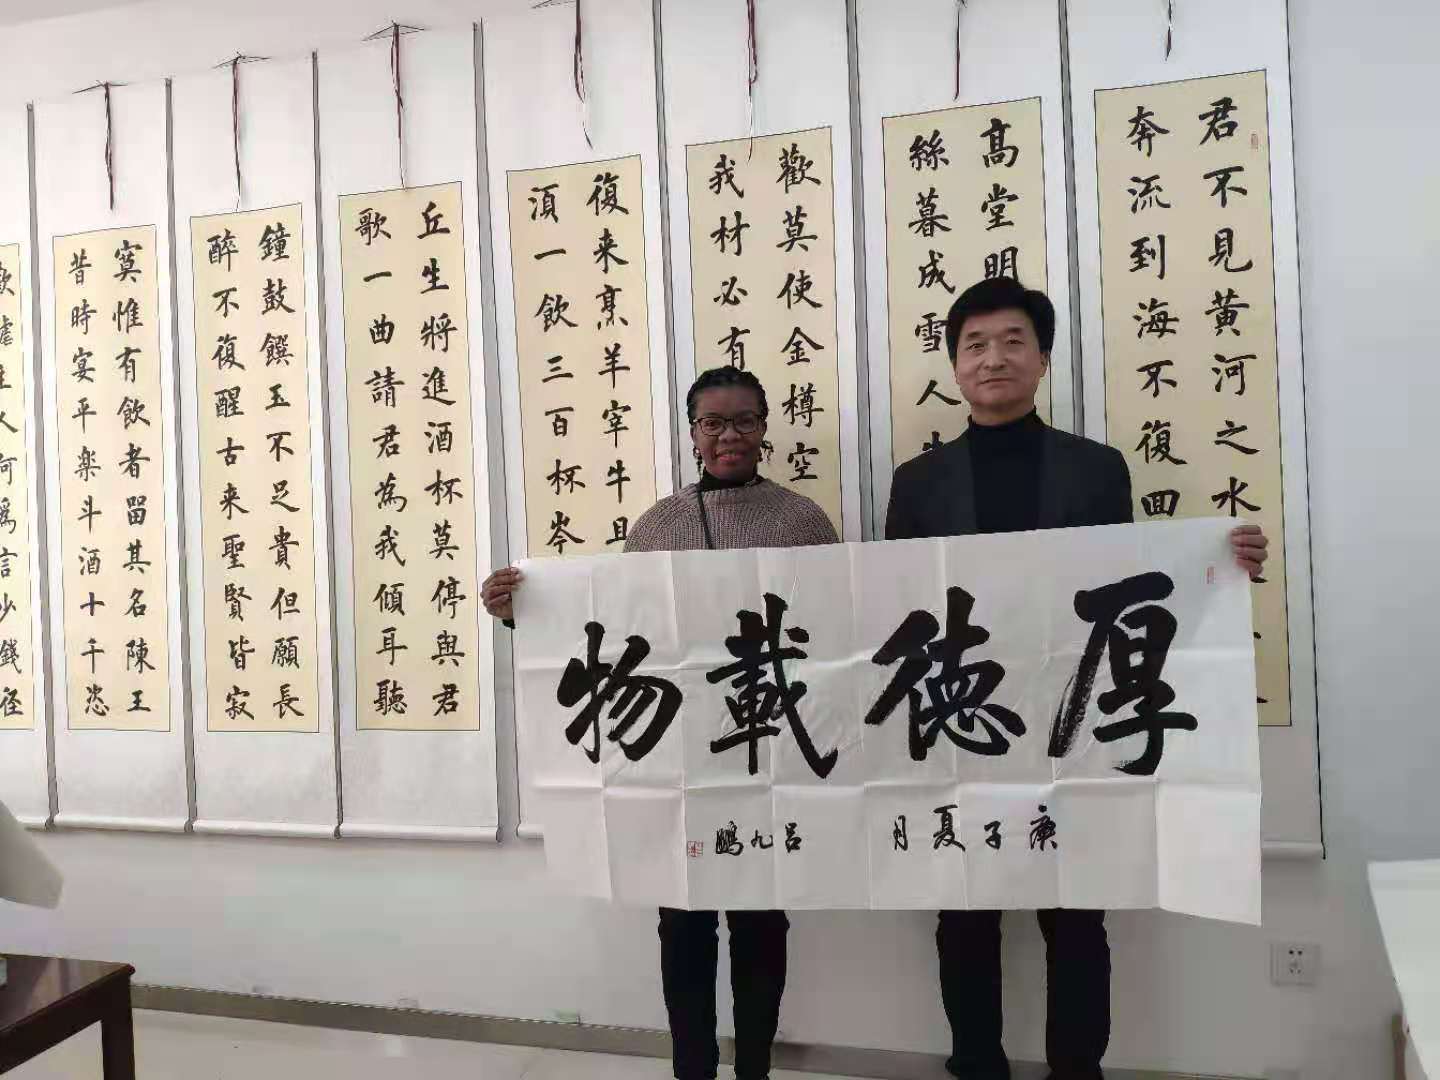 君不見黄河之水
奔流到海不復回
高堂明
絲暮成雪人
歡莫使金樽空
我材必有
復来烹羊宰牛且
湏一飲三百杯岑
丘生將進酒杯莫停與君
歌一曲請君為我傾耳聽
鐘鼓饌玉不足貴但願長
醉不復醒古来聖賢皆寂
寞惟有飲者留其名陳王
昔時宴平楽斗酒十千恣
歡謔主人何爲言少錢径
厚德載物
庚子夏月 吕九鵬